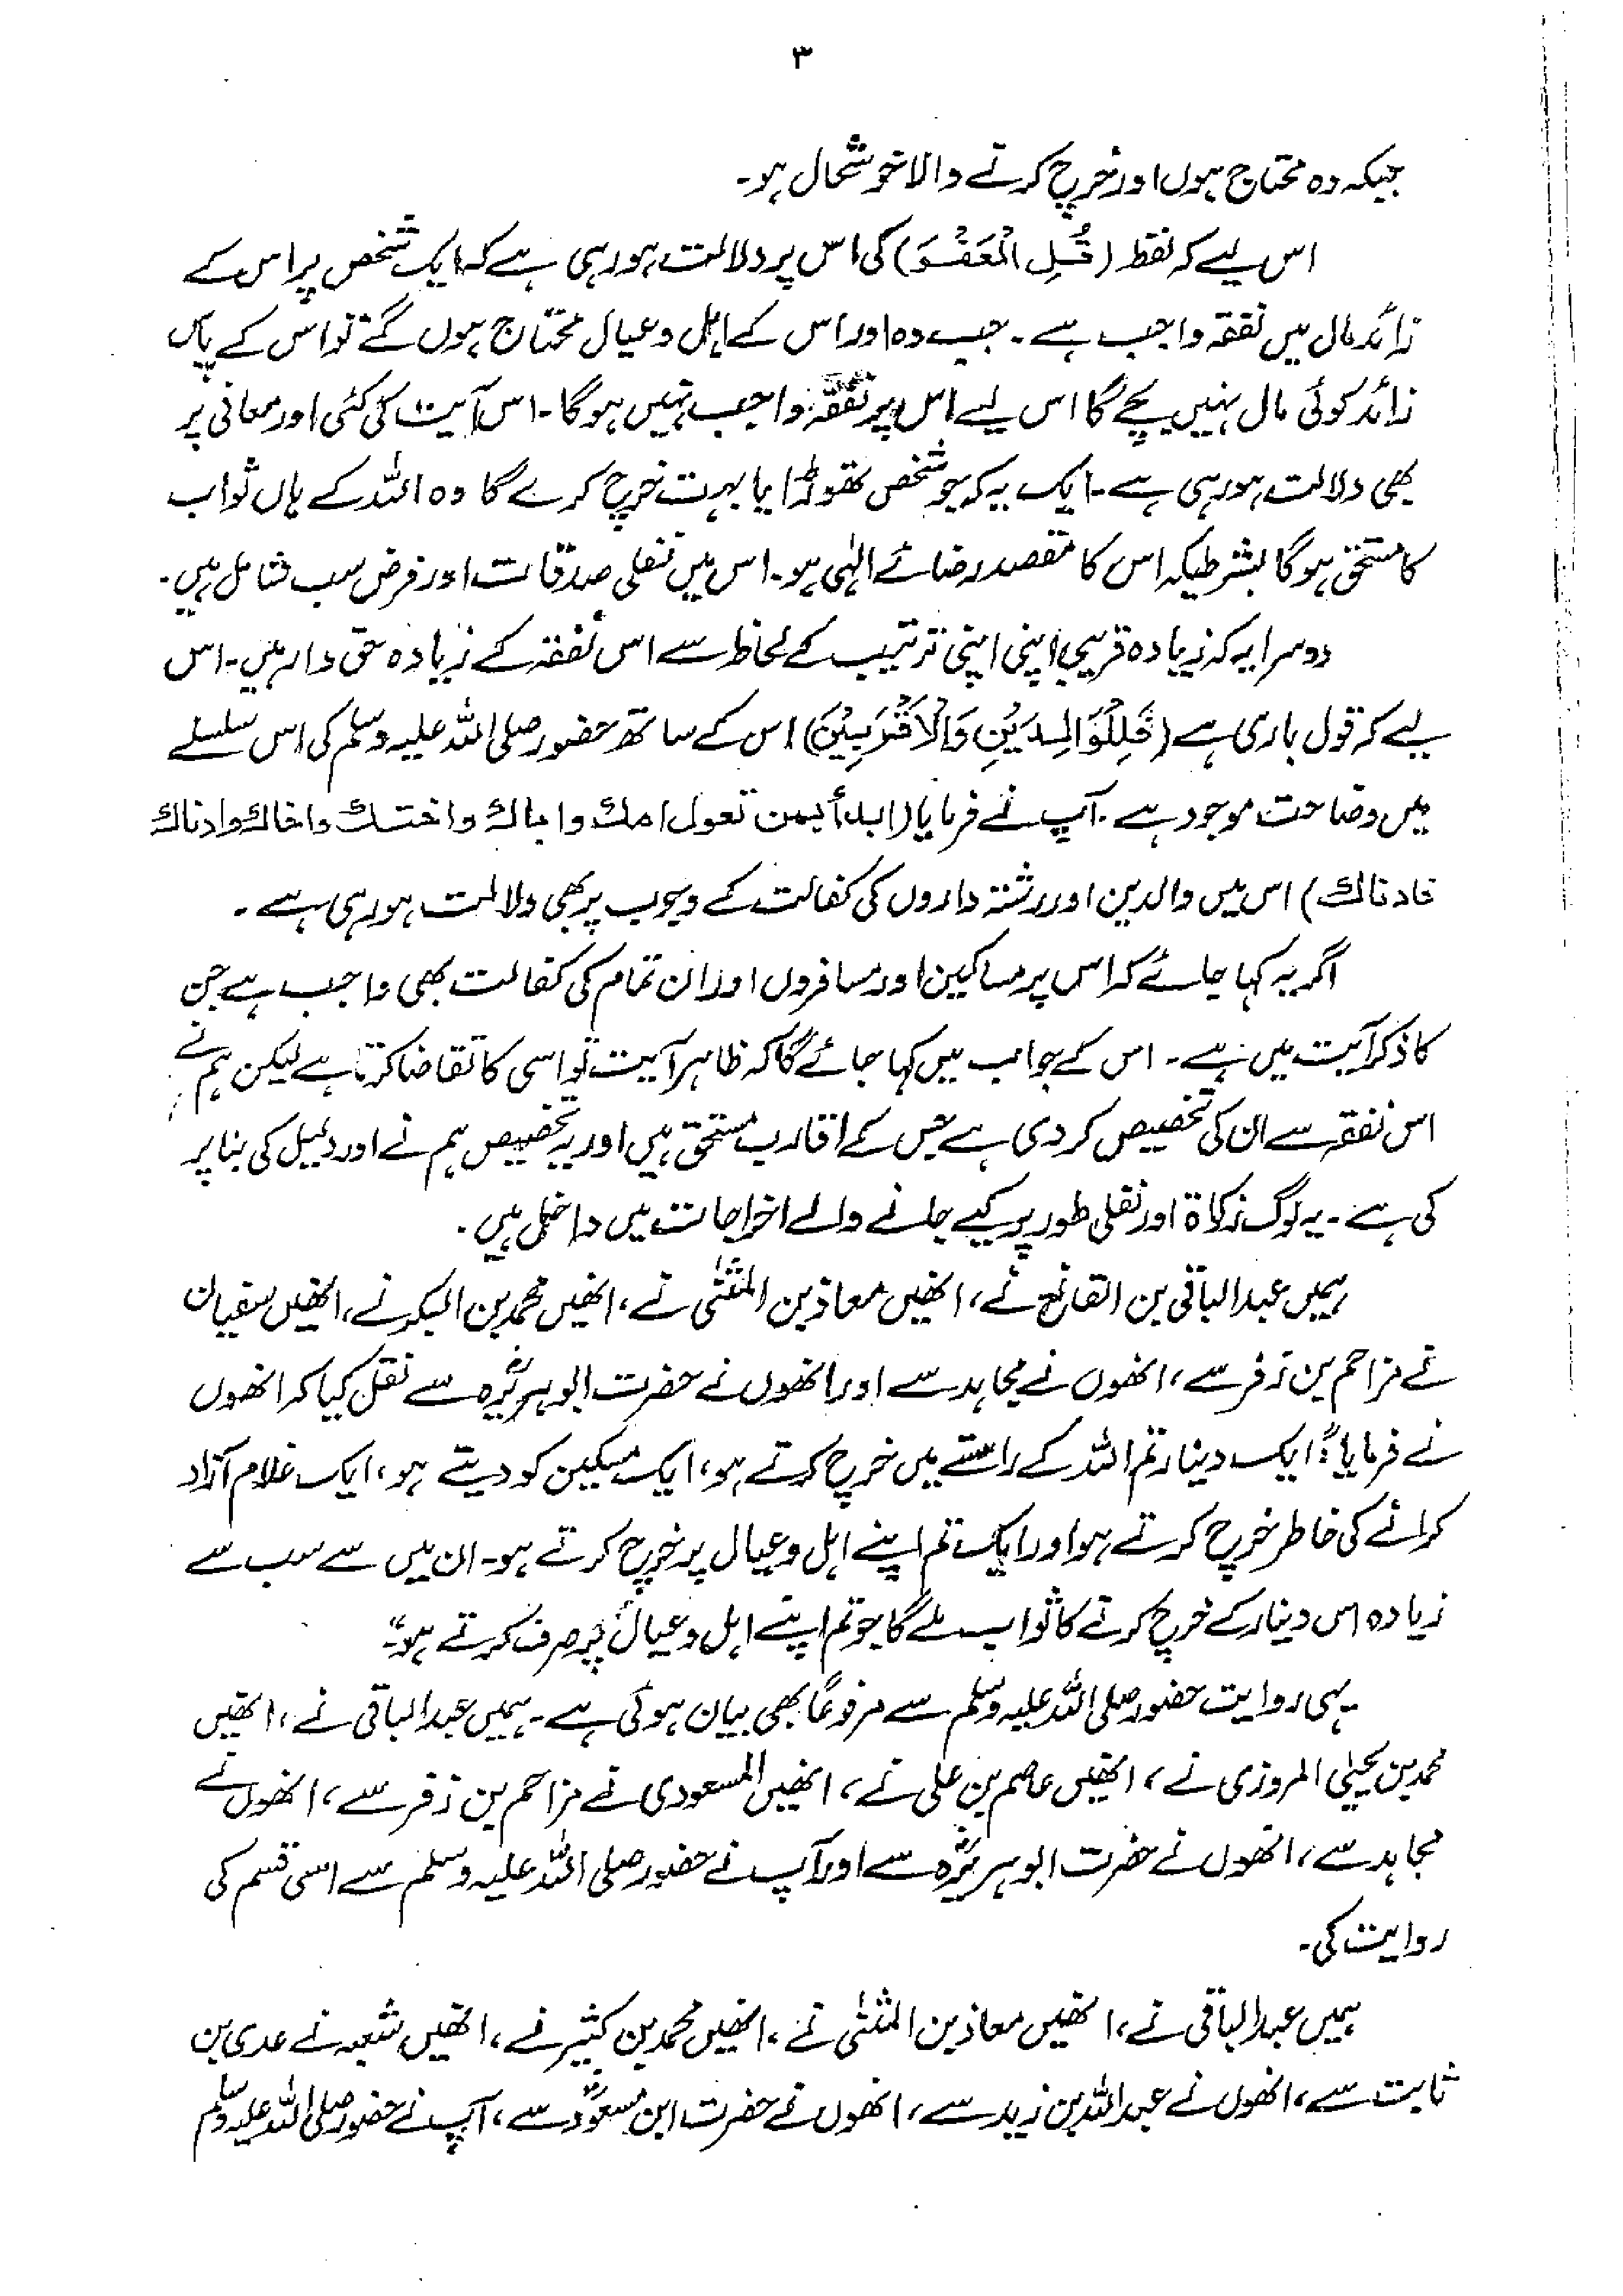 ۳
جبکہ وہ محتاج ہوں اور خرچ کرنے والا خوشحال ہو۔
اس لیے کہ لفظ (قُلِ الْعَفْوَ) کی اس پر دلالت ہو رہی ہے کہ ایک شخص پر اس کے
زائد مال میں نفقہ واجب ہے۔ جب وہ اور اس کے اہل و عیال محتاج ہوں گے تو اس کے پاس
زائد کوئی مال نہیں بچے گا اس لیے اس پر نفقہ واجب نہیں ہوگا۔ اس آیت کی کئی اور معانی پر
بھی دلالت ہو رہی ہے۔ ایک یہ کہ جو شخص تھوڑا یا بہت خرچ کرے گا وہ اللہ کے ہاں ثواب
کا مستحق ہوگا بشرطیکہ اس کا مقصد رضائے الہٰی ہو۔ اس میں نفلی صدقات اور فرض سب شامل ہیں۔
دوسرا یہ کہ زیادہ قریبی اپنی اپنی ترتیب کے لحاظ سے اس نفقہ کے زیادہ حق دار ہیں۔ اس
لیے کہ قول باری ہے (فَلِلْوَالِدَيْنِ وَالْأَقْرَبِيْنَ) اس کے ساتھ حضور صلی اللہ علیہ وسلم کی اس سلسلے
میں وضاحت موجود ہے۔ آپ نے فرمایا (ابدأ بمن تعول امك واباك واختك واخاك وادناك
فادناك) اس میں والدین اور رشتہ داروں کی کفالت کے وجوب پر بھی دلالت ہو رہی ہے۔
اگر یہ کہا جائے کہ اس پر مساکین اور مسافروں اور ان تمام کی کفالت بھی واجب ہے جن
کا ذکر آیت میں ہے۔ اس کے جواب میں کہا جائے گا کہ ظاہر آیت تو اسی کا تقاضا کرتا ہے لیکن ہم نے
اس نفقہ سے ان کی تخصیص کر دی ہے جس کے اقارب مستحق ہیں اور یہ تخصیص ہم نے اور دلیل کی بنا پر
کی ہے۔ یہ لوگ زکاۃ اور نفلی طور پر کیے جانے والے اخراجات میں داخل ہیں۔
ہمیں عبدالباقی بن القانع نے، انھیں معاذ بن المثنیٰ نے، انھیں محمد بن البکر نے، انھیں سفیان
نے مزاحم بن زفر سے، انھوں نے مجاہد سے اور انھوں نے حضرت ابوہریرہؓ سے نقل کیا کہ انھوں
نے فرمایا: "ایک دینار تم اللہ کے راستے میں خرچ کرتے ہو، ایک مسکین کو دیتے ہو، ایک غلام آزاد
کرانے کی خاطر خرچ کرتے ہو اور ایک تم اپنے اہل و عیال پر خرچ کرتے ہو۔ ان میں سے سب سے
زیادہ اس دینار کے خرچ کرنے کا ثواب ملے گا جو تم اپنے اہل و عیال پر صرف کرتے ہو"۔
یہی روایت حضور صلی اللہ علیہ وسلم سے مرفوعاً بھی بیان ہوئی ہے۔ ہمیں عبدالباقی نے، انھیں
محمد بن یحییٰ المروزی نے، انھیں عاصم بن علی نے، انھیں المسعودی نے مزاحم بن زفر سے، انھوں نے
مجاہد سے، انھوں نے حضرت ابوہریرہؓ سے اور آپ نے حضور صلی اللہ علیہ وسلم سے اسی قسم کی
روایت کی۔
ہمیں عبدالباقی نے، انھیں معاذ بن المثنیٰ نے، انھیں محمد بن کثیر نے، انھیں شعبہ نے عدی بن
ثابت سے، انھوں نے عبداللہ بن زید سے، انھوں نے حضرت ابن مسعودؓ سے، آپ نے حضور صلی اللہ علیہ وسلم